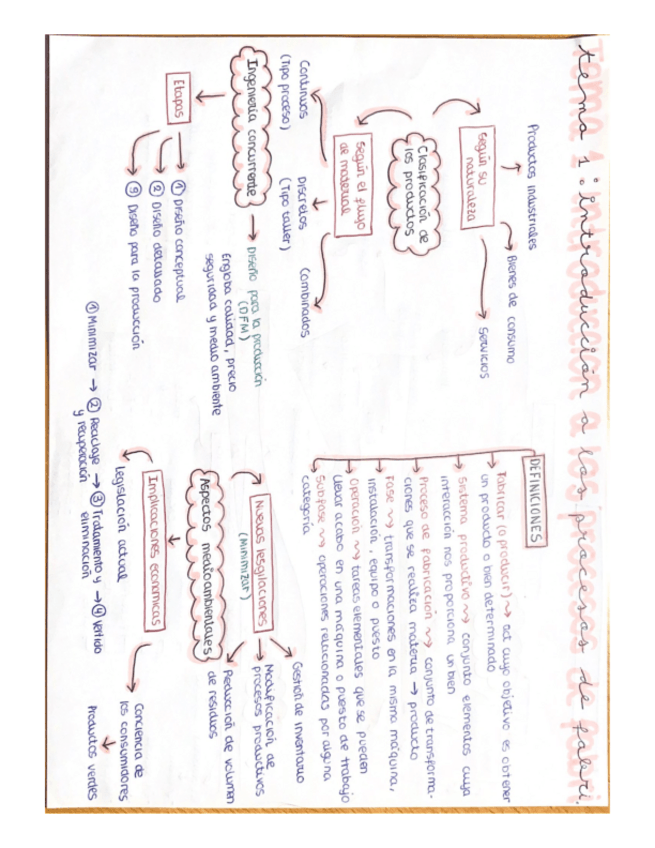 tema 1: introducción a los procesos de fabri.
Clasificación de
los productos
según su
naturaleza
Productos industriales
Bienes de consumo
Servicios
según el flujo
de material
Continuos
(Tipo proceso)
Discretos
(Tipo taller)
Combinados
Ingeniería concurrente
Diseño para la producción
(DFM)
Engloba calidad, precio
seguridad y medio ambiente
Etapas
① Diseño conceptual
② Diseño detallado
③ Diseño para la producción
DEFINICIONES
Fabricar (o producir) ⇝ act cuyo objetivo es obtener
un producto o bien determinado
Sistema productivo ⇝ conjunto elementos cuya
interacción nos proporciona un bien
Proceso de fabricación ⇝ conjunto de transforma-
ciones que se realiza materia → producto
Fase ⇝ transformaciones en la misma máquina,
instalación, equipo o puesto
Operación ⇝ tareas elementales que se pueden
llevar a cabo en una máquina o puesto de trabajo
Subfase ⇝ operaciones relacionadas por alguna
categoría
Aspectos medioambientales
Nuevas lesgilaciones
(Minimizar)
Gestión de inventario
Modificación de
procesos productivos
Reducción de volumen
de residuos
Implicaciones económicas
Legislación actual
Conciencia de
los consumidores
Productos verdes
① Minimizar → ② Reciclaje → ③ Tratamiento y → ④ Vertido
y recuperación eliminación